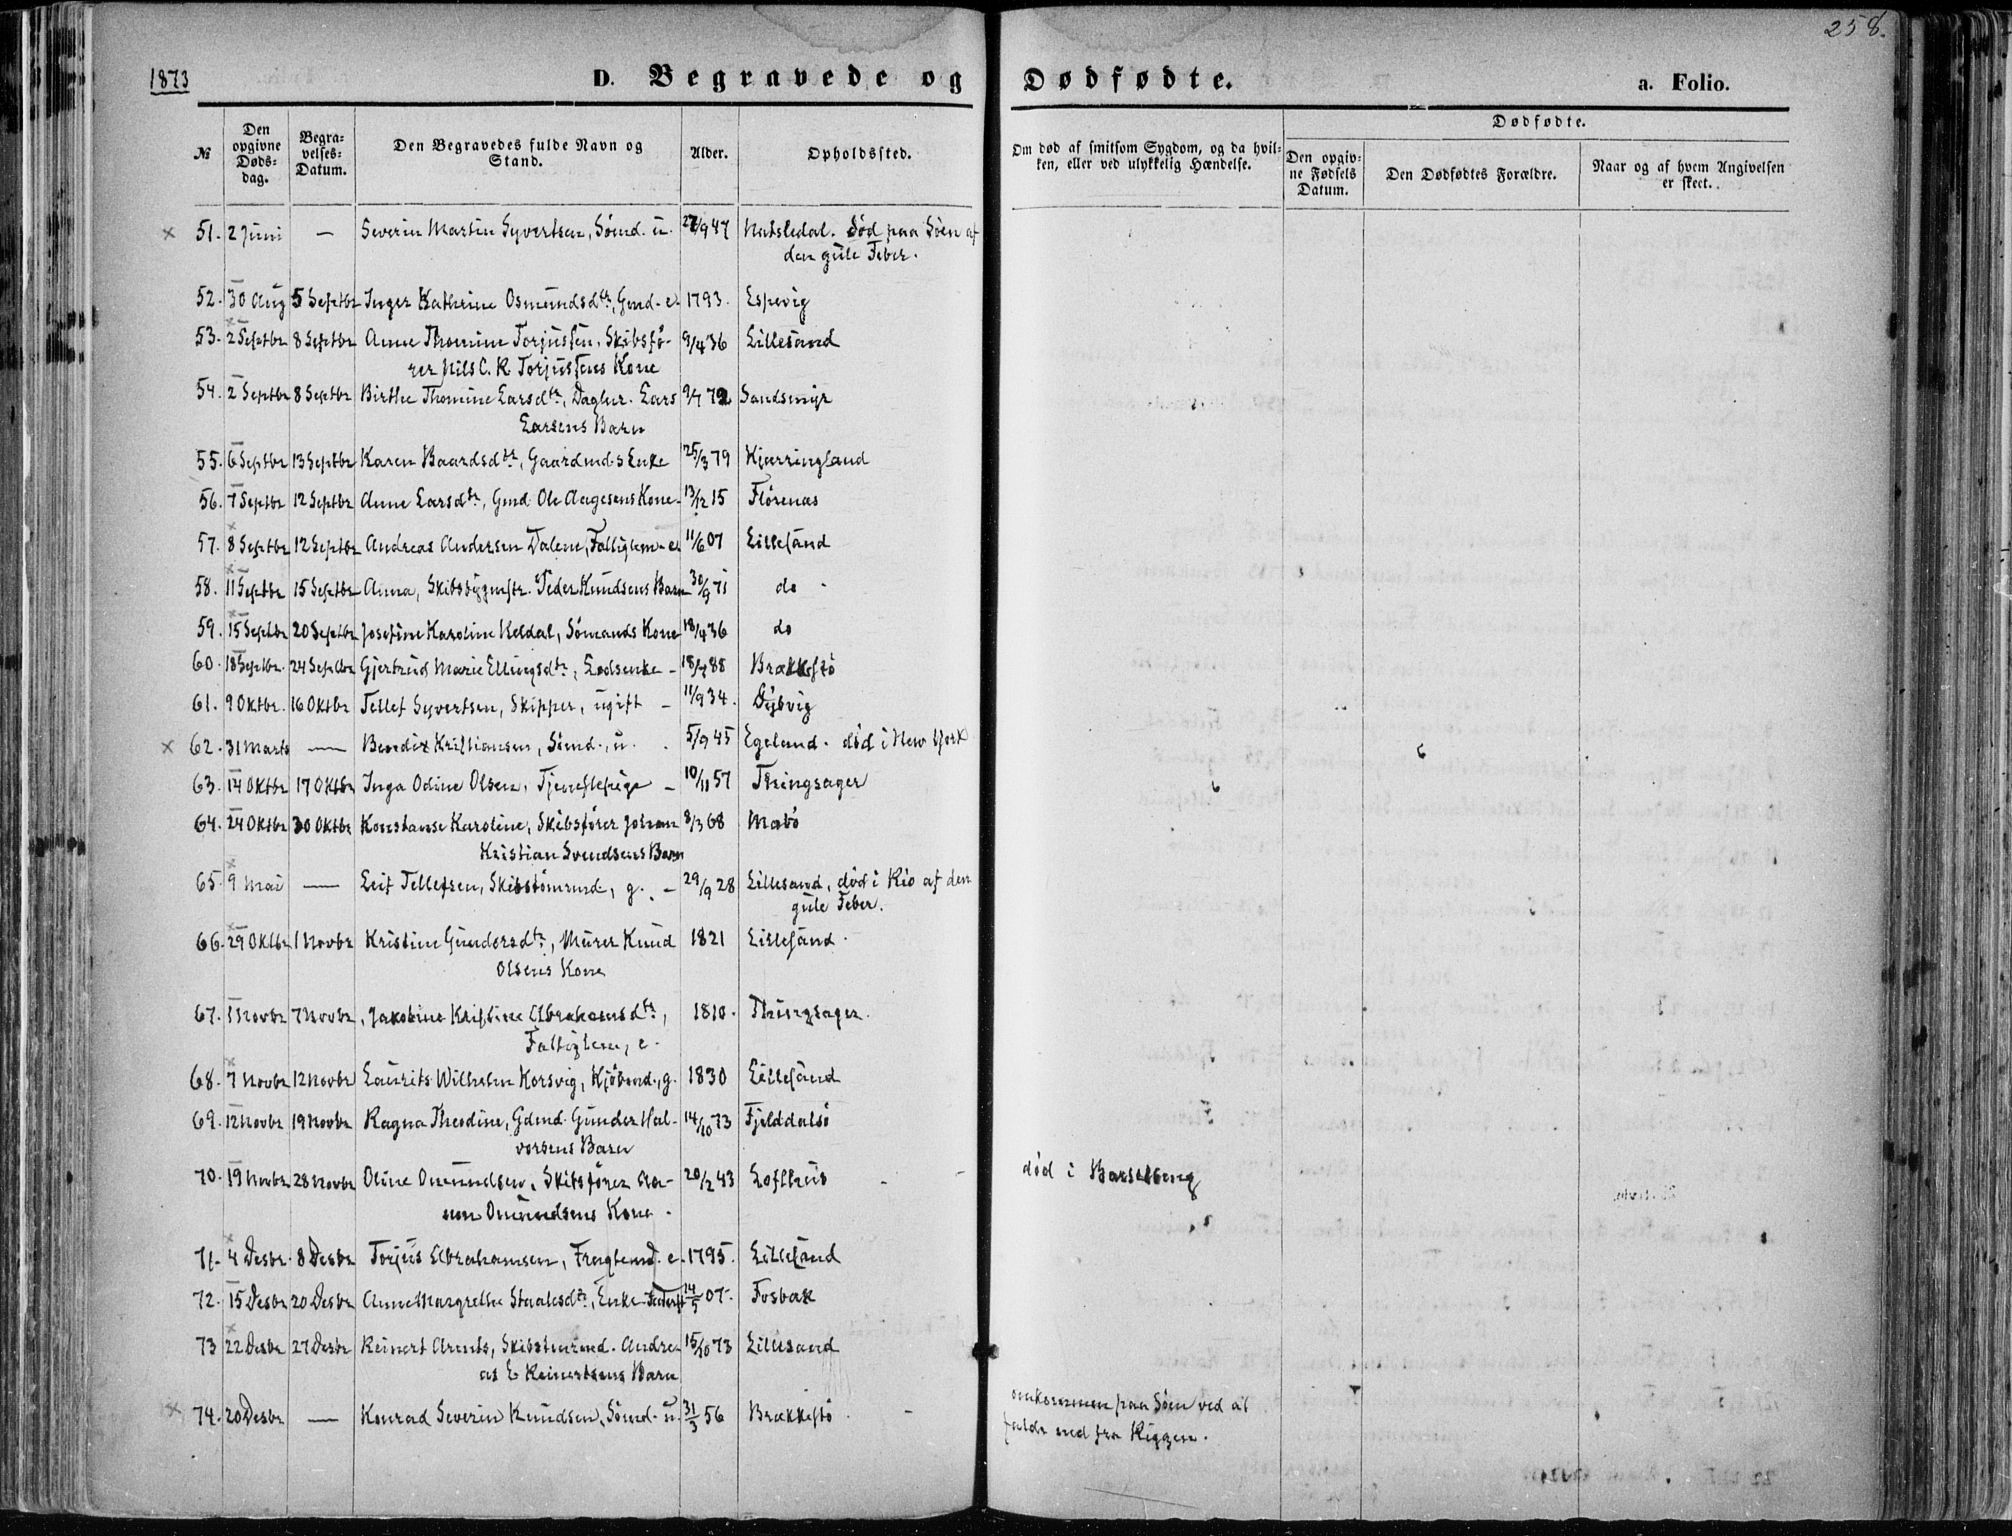 258.
1873
D. Begravede og Dødfødte. a. Folio.
№ Den opgivne Døds-dag. Begra-velses-Datum. Den Begravedes fulde Navn og Stand. Alder. Opholdssted. Om død af smitsom Sygdom, og da hvil-ken, eller ved ulykkelig Hændelse. Dødfødte. Den opgiv-ne Fødsels Datum. Den Dødfødtes Forældre. Naar og af hvem Angivelsen er skeet.
× 51. 2 Juni — Severin Martin Syvertsen, Sømd. u. 9 47 død paa Søen af
den gule Feber.
52. 30 Aug 5 Septbr Inger Kathrine Osmundsdtr, Gmd. e. 1793. Espevig
53. 2 Septbr 8 Septbr Anne Thomine Torjussen, Skibsfø- 9/4 36 Lillesand
rer Nils C. R. Torjussens Kone
54. 2 Septbr 8 Septbr Birthe Thomine Larsdtr, Daglnr. Lars 9/7 72 Sandsmyr
Larsens Barn
55. 6 Septbr 13 Septbr Karen Baardsdtr, Gaardmds Enke 25/3 79 Kjærringland
56. 7 Septbr 12 Septbr Anne Larsdtr, Gmd Ole Aagesens Kone 13/12 15 Flørenæs
57. 8 Septbr 12 Septbr Andreas Andersen Dalene, Fattiglem e. 11/6 07 Lillesand
58. 11 Septbr 15 Septbr Anna, Skibsbygmstr. Peder Knudsens Barn 30/9 71 do
59. 15 Septbr 20 Septbr Josefine Karoline Heldal, Sømands Kone 18/4 36 do
60. 18 Septbr. 24 Septbr Gjertrud Marie Ellingsdtr, Lodsenke - 88 Brækkestø
61. 9 Oktbr. 16 Oktbr Tellef Syvertsen, Skipper, ugift - 11/9 34. Dybvig
× 62. 31 Marts — Bendix Kristiansen, Sømd., u. 5/9 45 Egeland. død i New York
63. 14 Oktbr 17 Oktbr Inga Odine Olsen, Tjenestepige - 10/11 57 Thingsager
64. 24 Oktbr 30 Oktbr Konstanse Karoline, Skibsfører Johan 8/3 68 Mabø
Kristian Svendsens Barn
65. 9 Mai — Leif Tellefsen, Skibstømrmd, g. - 29/9 28 Lillesand, død i Rio af den
gule Feber.
66. 29 Oktbr 1 Novbr Kristine Gundersdtr, Murer Knud 1821 Lillesand.
Olsens Kone
67. 1 Novbr 7 Novbr Jakobine Kristine Abrahamsdtr, 1810. Thingsager.
Fattiglem, e.
68. 7 Novbr 12 Novbr Laurits Wilhelm Korsvig, Kjøbmd., g. 1830 Lillesand
69. 12 Novbr 19 Novbr Ragna Theodine, Gdmd. Gunder Hal- 14/10 73 Fjelddalsø
vorsens Barn
70. 19 Novbr 28 Novbr Oline Omundsen, Skibsfører Aa- 20/2 43 Lofthus død i Barselseng
non Omundsens Kone.
71. 4 Desbr. 8 Desbr Torjus Abrahamsen, e. 1795. Lillesand
72. 15 Desbr 20 Desbr Anne Margrethe Staalesdtr, Enke 14/5 07. Fosbæk
73 22 Desbr 27 Desbr Reinert Arents, Skibstmrmd. Andre- 15/10 73 Lillesand
as E Reinertsens Barn
× 74. 20 Desbr — Konrad Severin Knudsen, Sømd. u. 31/3 56 Brækkestø. omkommen paa Søen ved at
falde ned fra Riggen.